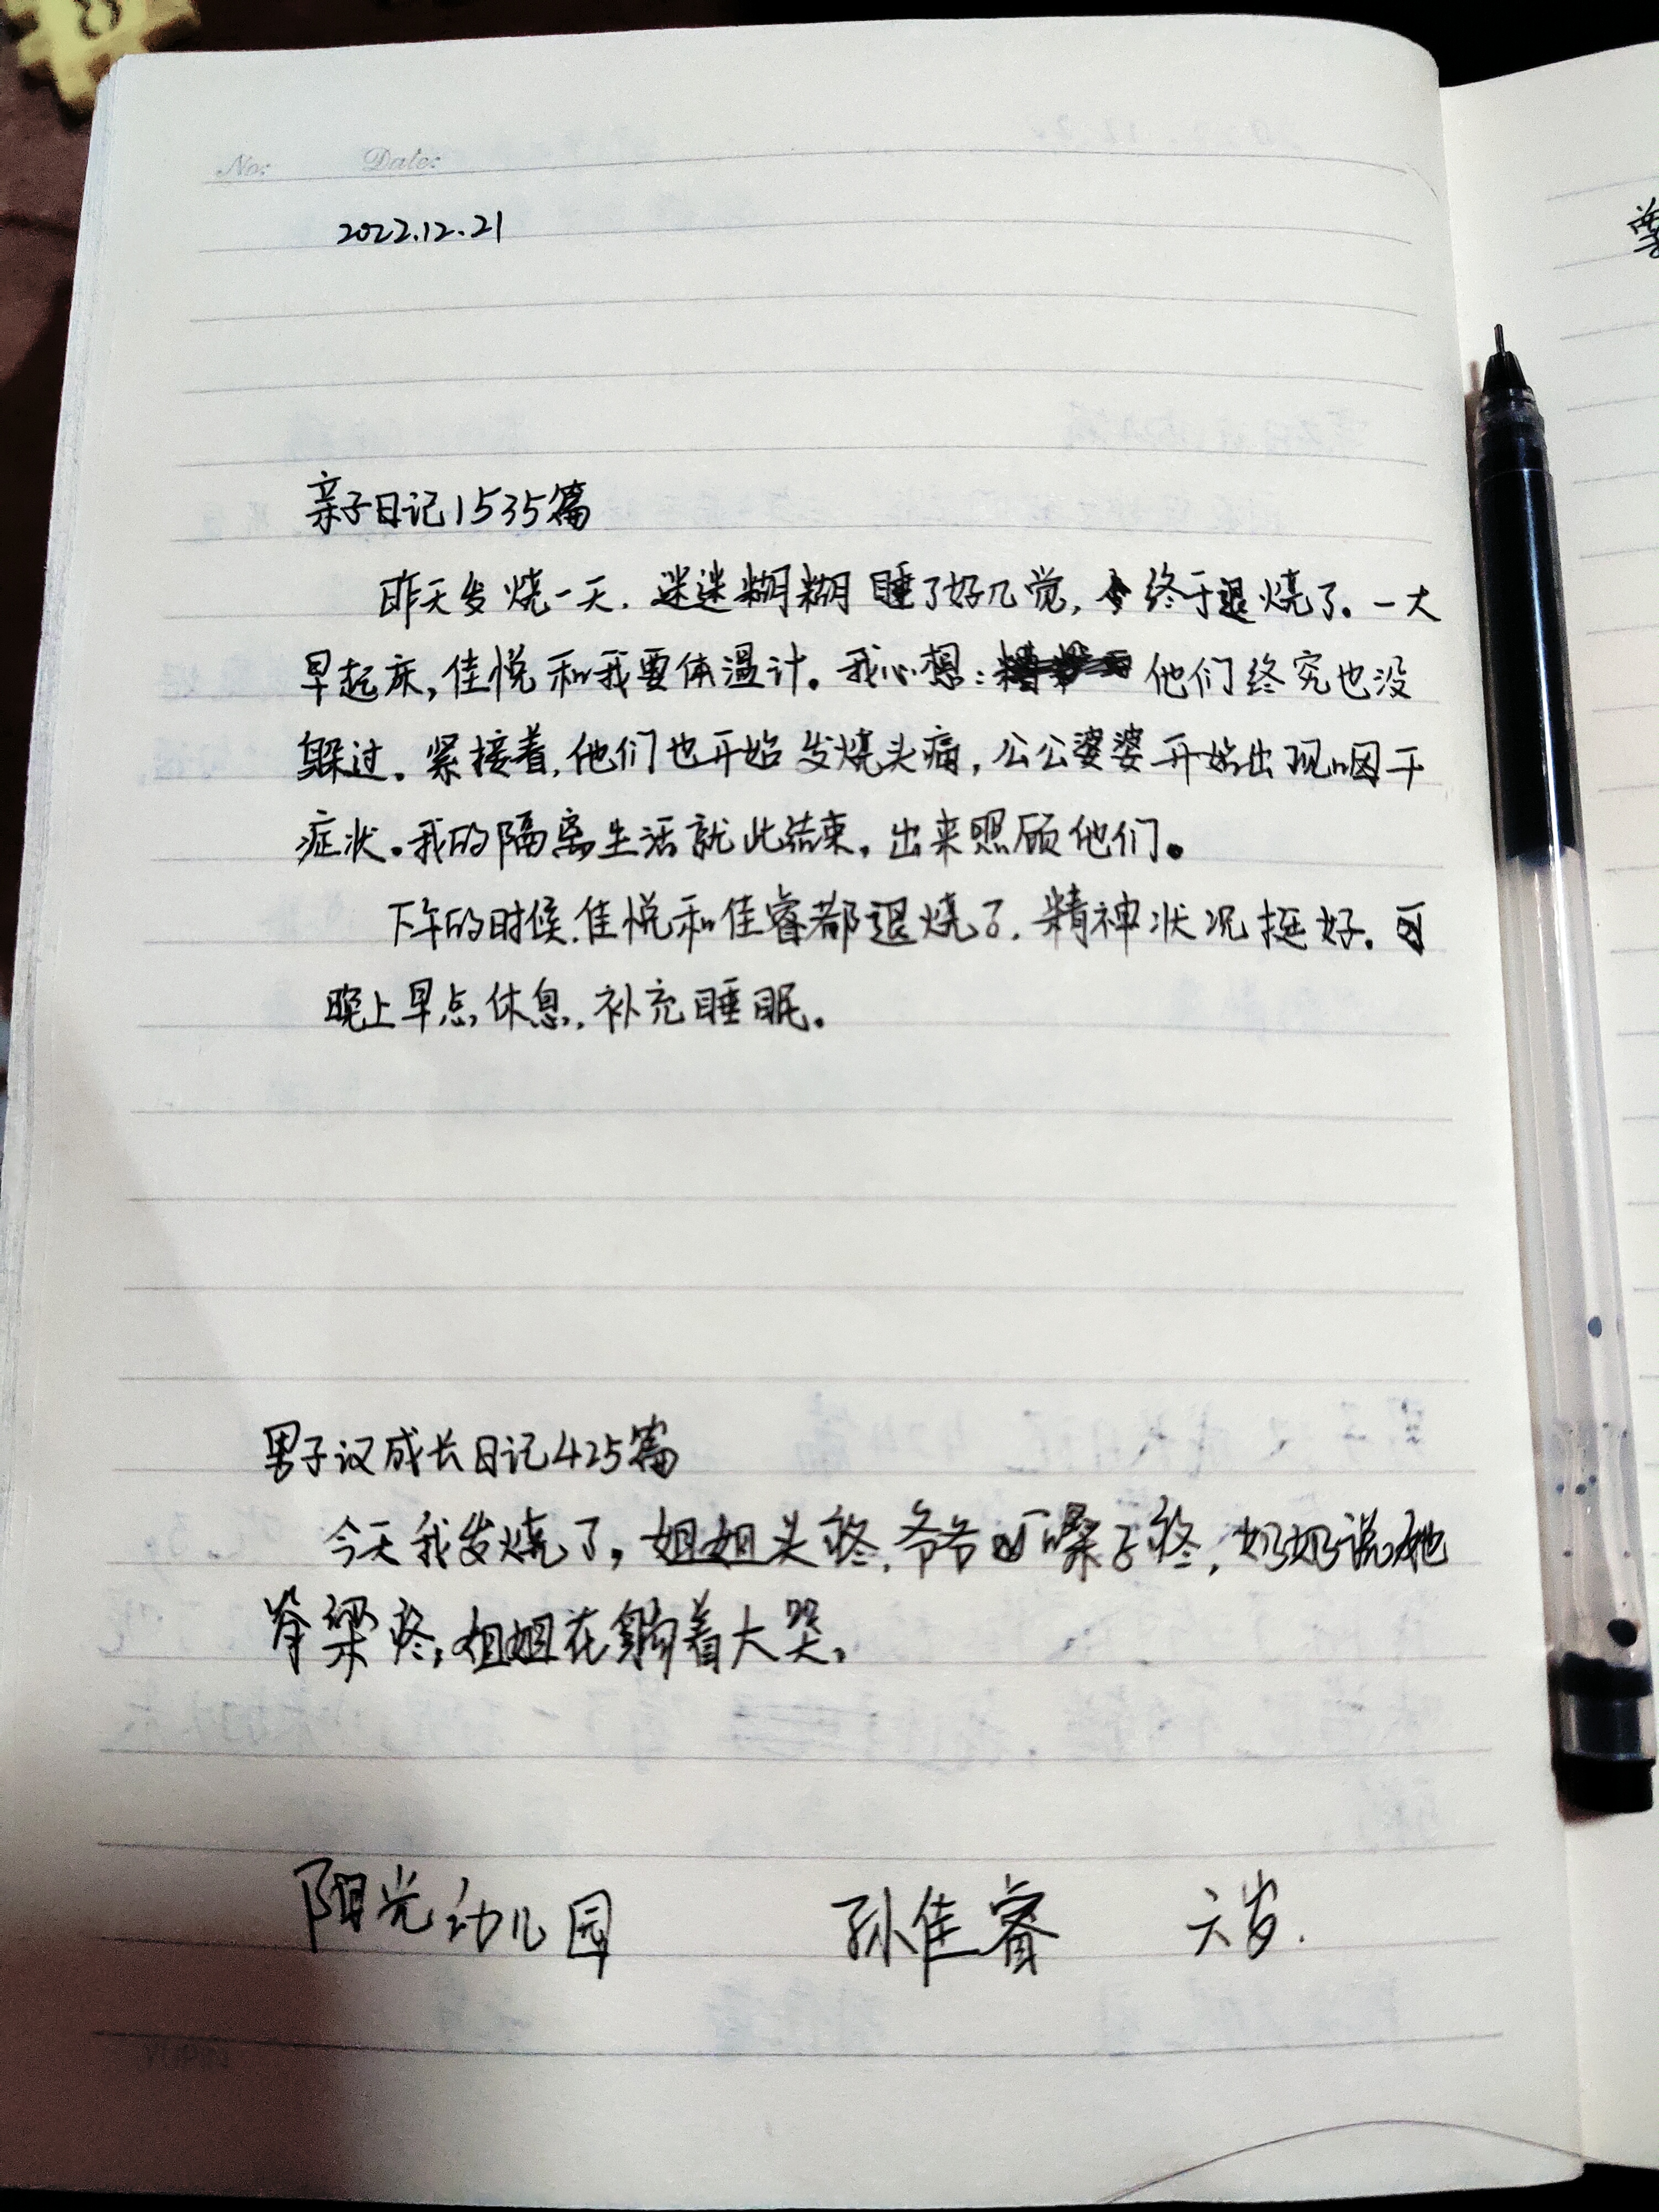 No: Date:
2022.12.21
亲子日记1535篇
昨天发烧一天，迷迷糊糊睡了好几觉，终于退烧了。一大
早起床，佳悦和我要体温计。我心想：他们终究也没
躲过。紧接着，他们也开始发烧头痛，公公婆婆开始出现咽干
症状。我的隔离生活就此结束，出来照顾他们。
下午的时候，佳悦和佳睿都退烧了，精神状况挺好。
晚上早点休息，补充睡眠。
男子汉成长日记425篇
今天我发烧了，姐姐头疼，爷爷嗓子疼，奶奶说她
脊梁疼，姐姐在躺着大哭。
阳光幼儿园 孙佳睿 六岁.
YUPIN